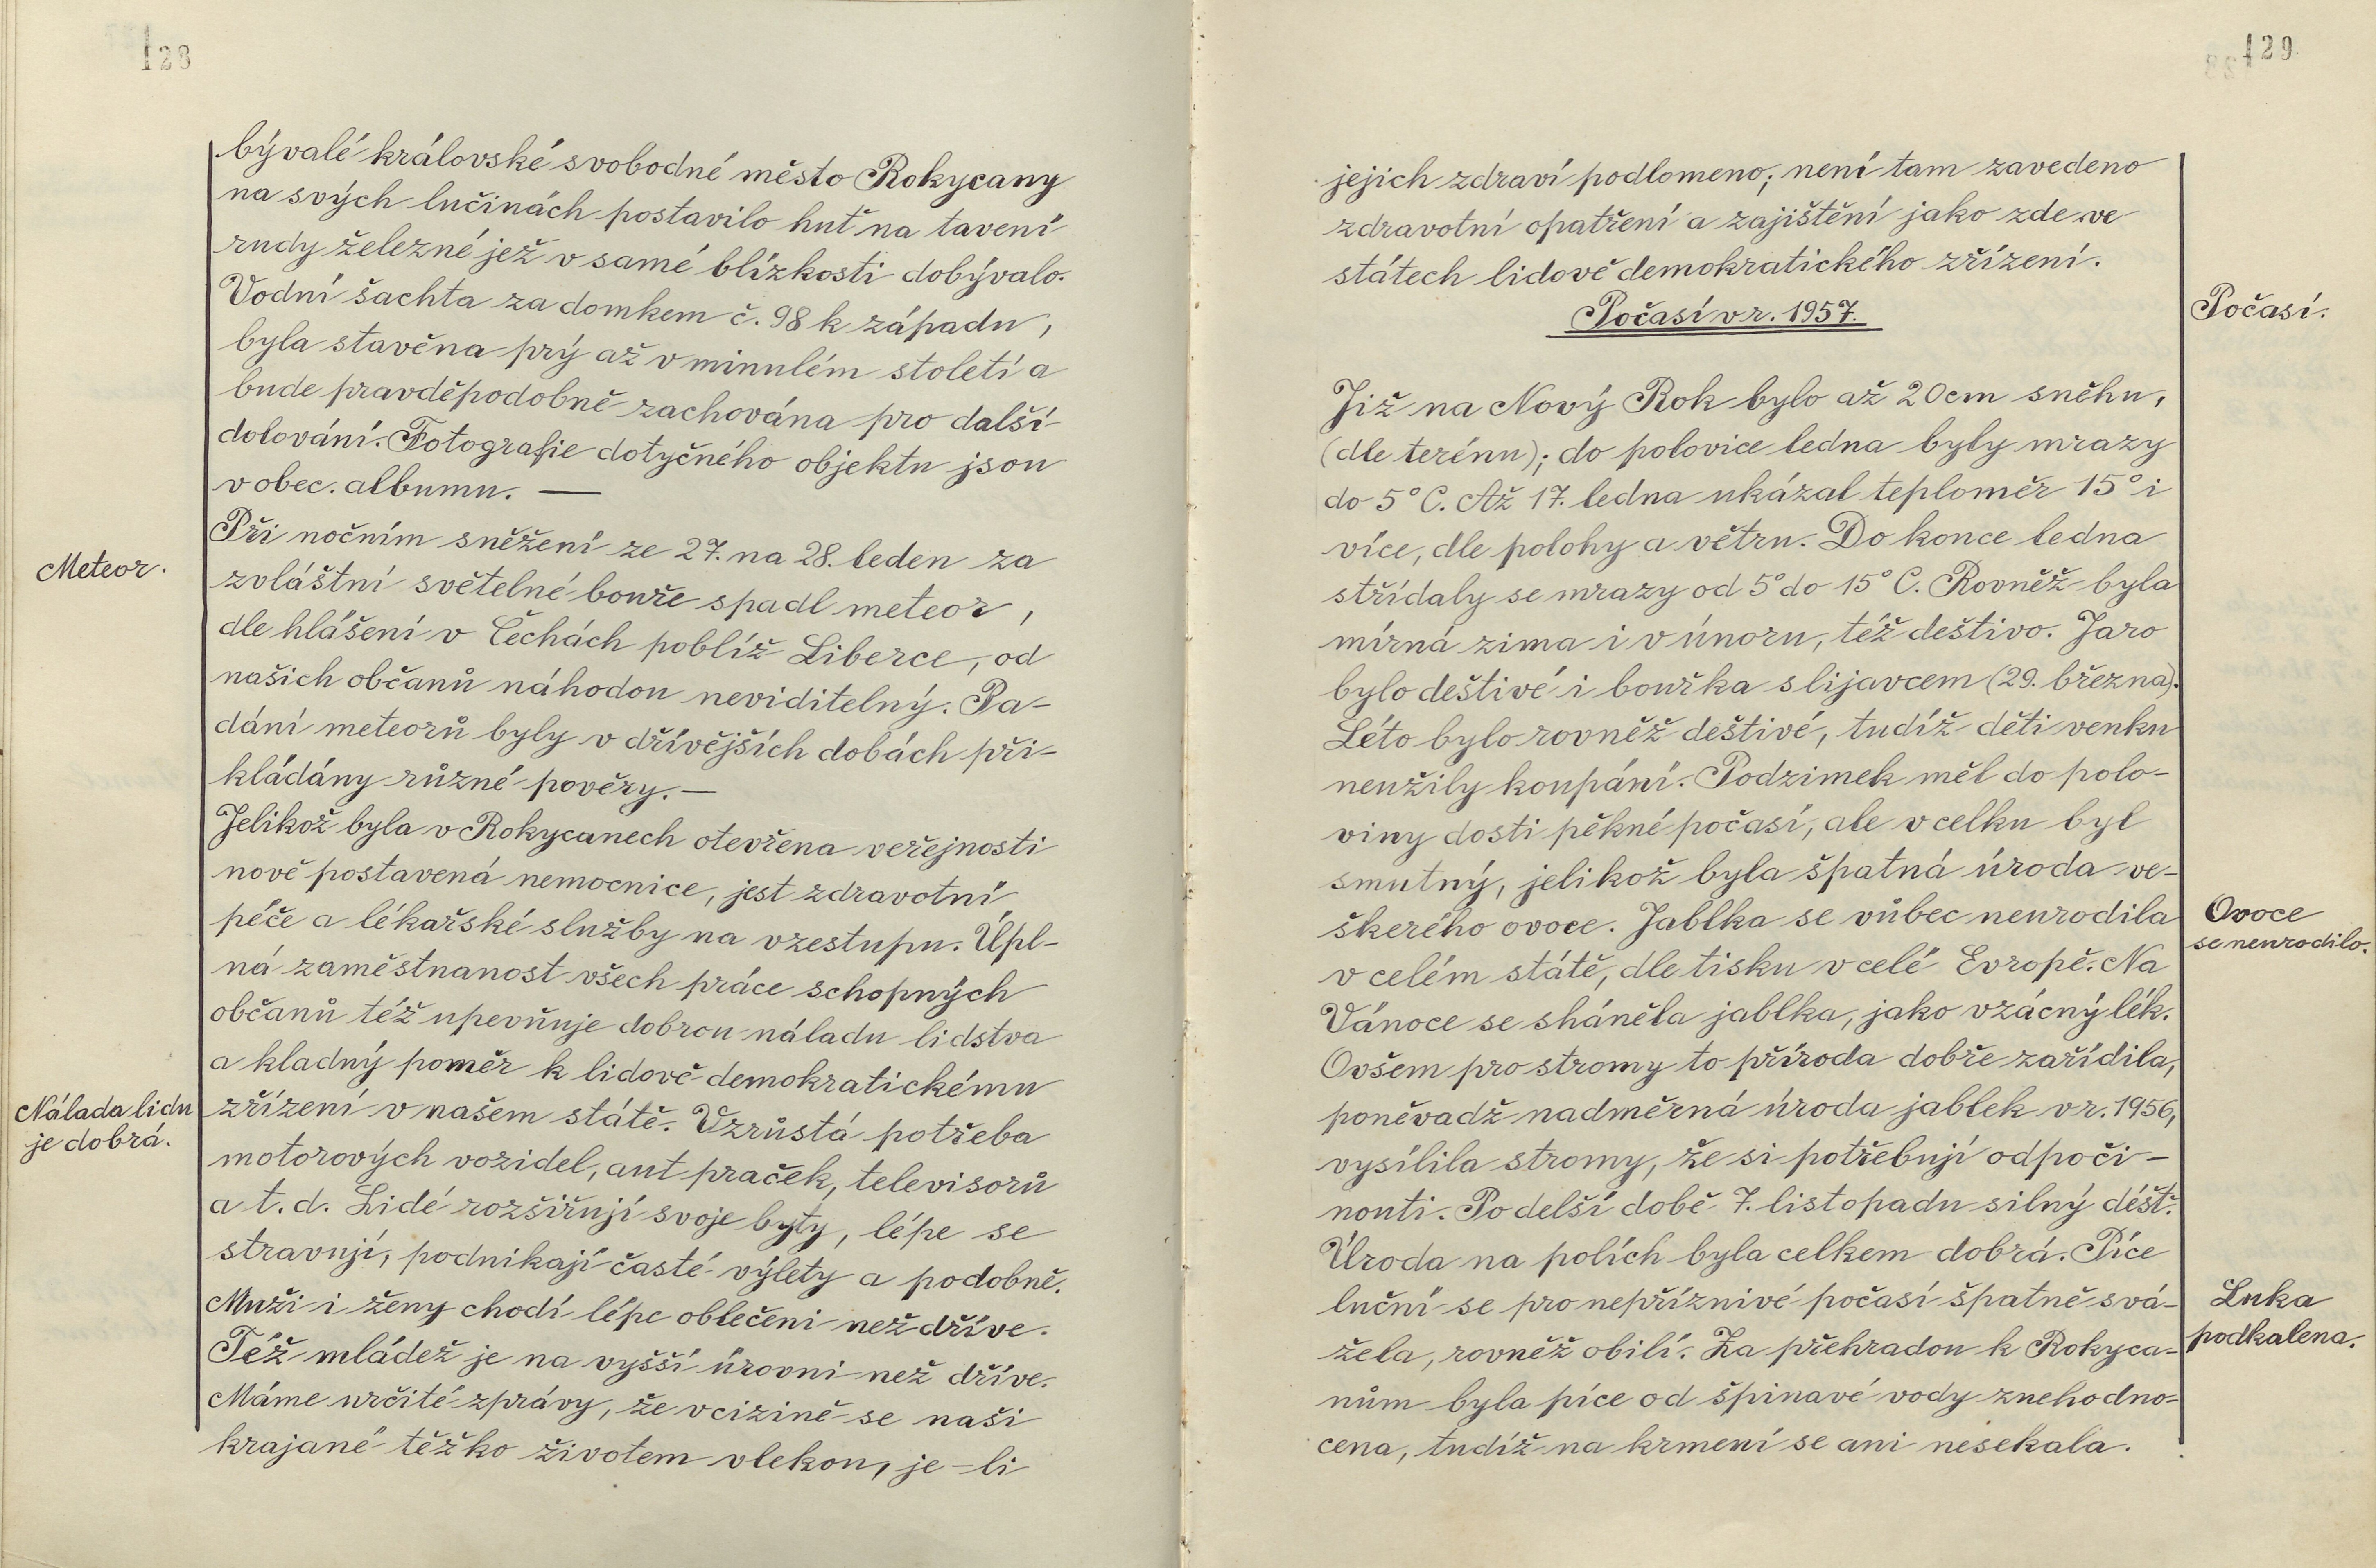 128
bývalé královské svobodné město Rokycany
na svých lučinách postavilo huť na tavení
rudy železné jež v samé blízkosti dobývalo.
Vodní šachta za domkem č. 98 k západu,
byla stavěna prý až v minulém století a
bude pravděpodobně zachována pro další
dolování. Fotografie dotyčného objektu jsou
v obec. albumu. —
Meteor.
Při nočním sněžení ze 27. na 28. leden za
zvláštní světelné bouře spadl meteor,
dle hlášení v Čechách poblíž Liberce, od
našich občanů náhodou neviditelný. Pa-
dání meteorů byly v dřívějších dobách při-
kládány různé pověry. —
Jelikož byla v Rokycanech otevřena veřejnosti
nově postavená nemocnice, jest zdravotní
péče a lékařské služby na vzestupu. Úpl-
ná zaměstnanost všech práce schopných
občanů též upevňuje dobrou náladu lidstva
a kladný poměr k lidově demokratickému
Nálada lidu
je dobrá.
zřízení v našem státě. Vzrůstá potřeba
motorových vozidel, aut praček, televisorů
a t. d. Lidé rozšiřují svoje byty, lépe se
stravují, podnikají časté výlety a podobně.
Muži i ženy chodí lépe oblečeni než dříve.
Též mládež je na vyšší úrovni než dříve.
Máme určité zprávy, že v cizině se naši
krajané těžko životem vlekou, je-li
129
jejich zdraví podlomeno; není tam zavedeno
zdravotní opatření a zajištění jako zde ve
státech lidově demokratického zřízení.
Počasí v r. 1957.
Počasí.
Již na Nový Rok bylo až 20cm sněhu,
(dle terénu); do polovice ledna byly mrazy
do 5° C. Až 17. ledna ukázal teploměr 15° i
více, dle polohy a větru. Do konce ledna
střídaly se mrazy od 5° do 15° C. Rovněž byla
mírná zima i v únoru, též deštivo. Jaro
bylo deštivé i bouřka s lijavcem (29. března).
Léto bylo rovněž deštivé, tudíž děti venku
neužily koupání. Podzimek měl do polo-
viny dosti pěkné počasí, ale v celku byl
smutný, jelikož byla špatná úroda ve-
škerého ovoce. Jablka se vůbec neurodila
Ovoce
se neurodilo.
v celém státě, dle tisku v celé Evropě. Na
Vánoce se sháněla jablka, jako vzácný lék.
Ovšem pro stromy to příroda dobře zařídila,
poněvadž nadměrná úroda jablek v r. 1956,
vysílila stromy, že si potřebují odpoči-
nouti. Po delší době 7. listopadu silný déšť.
Úroda na polích byla celkem dobrá. Píce
luční se pro nepříznivé počasí špatně svá-
Luka
podkalena.
žela, rovněž obilí. Za přehradou k Rokyca-
nům byla píce od špinavé vody znehodno-
cena, tudíž na krmení se ani nesekala.